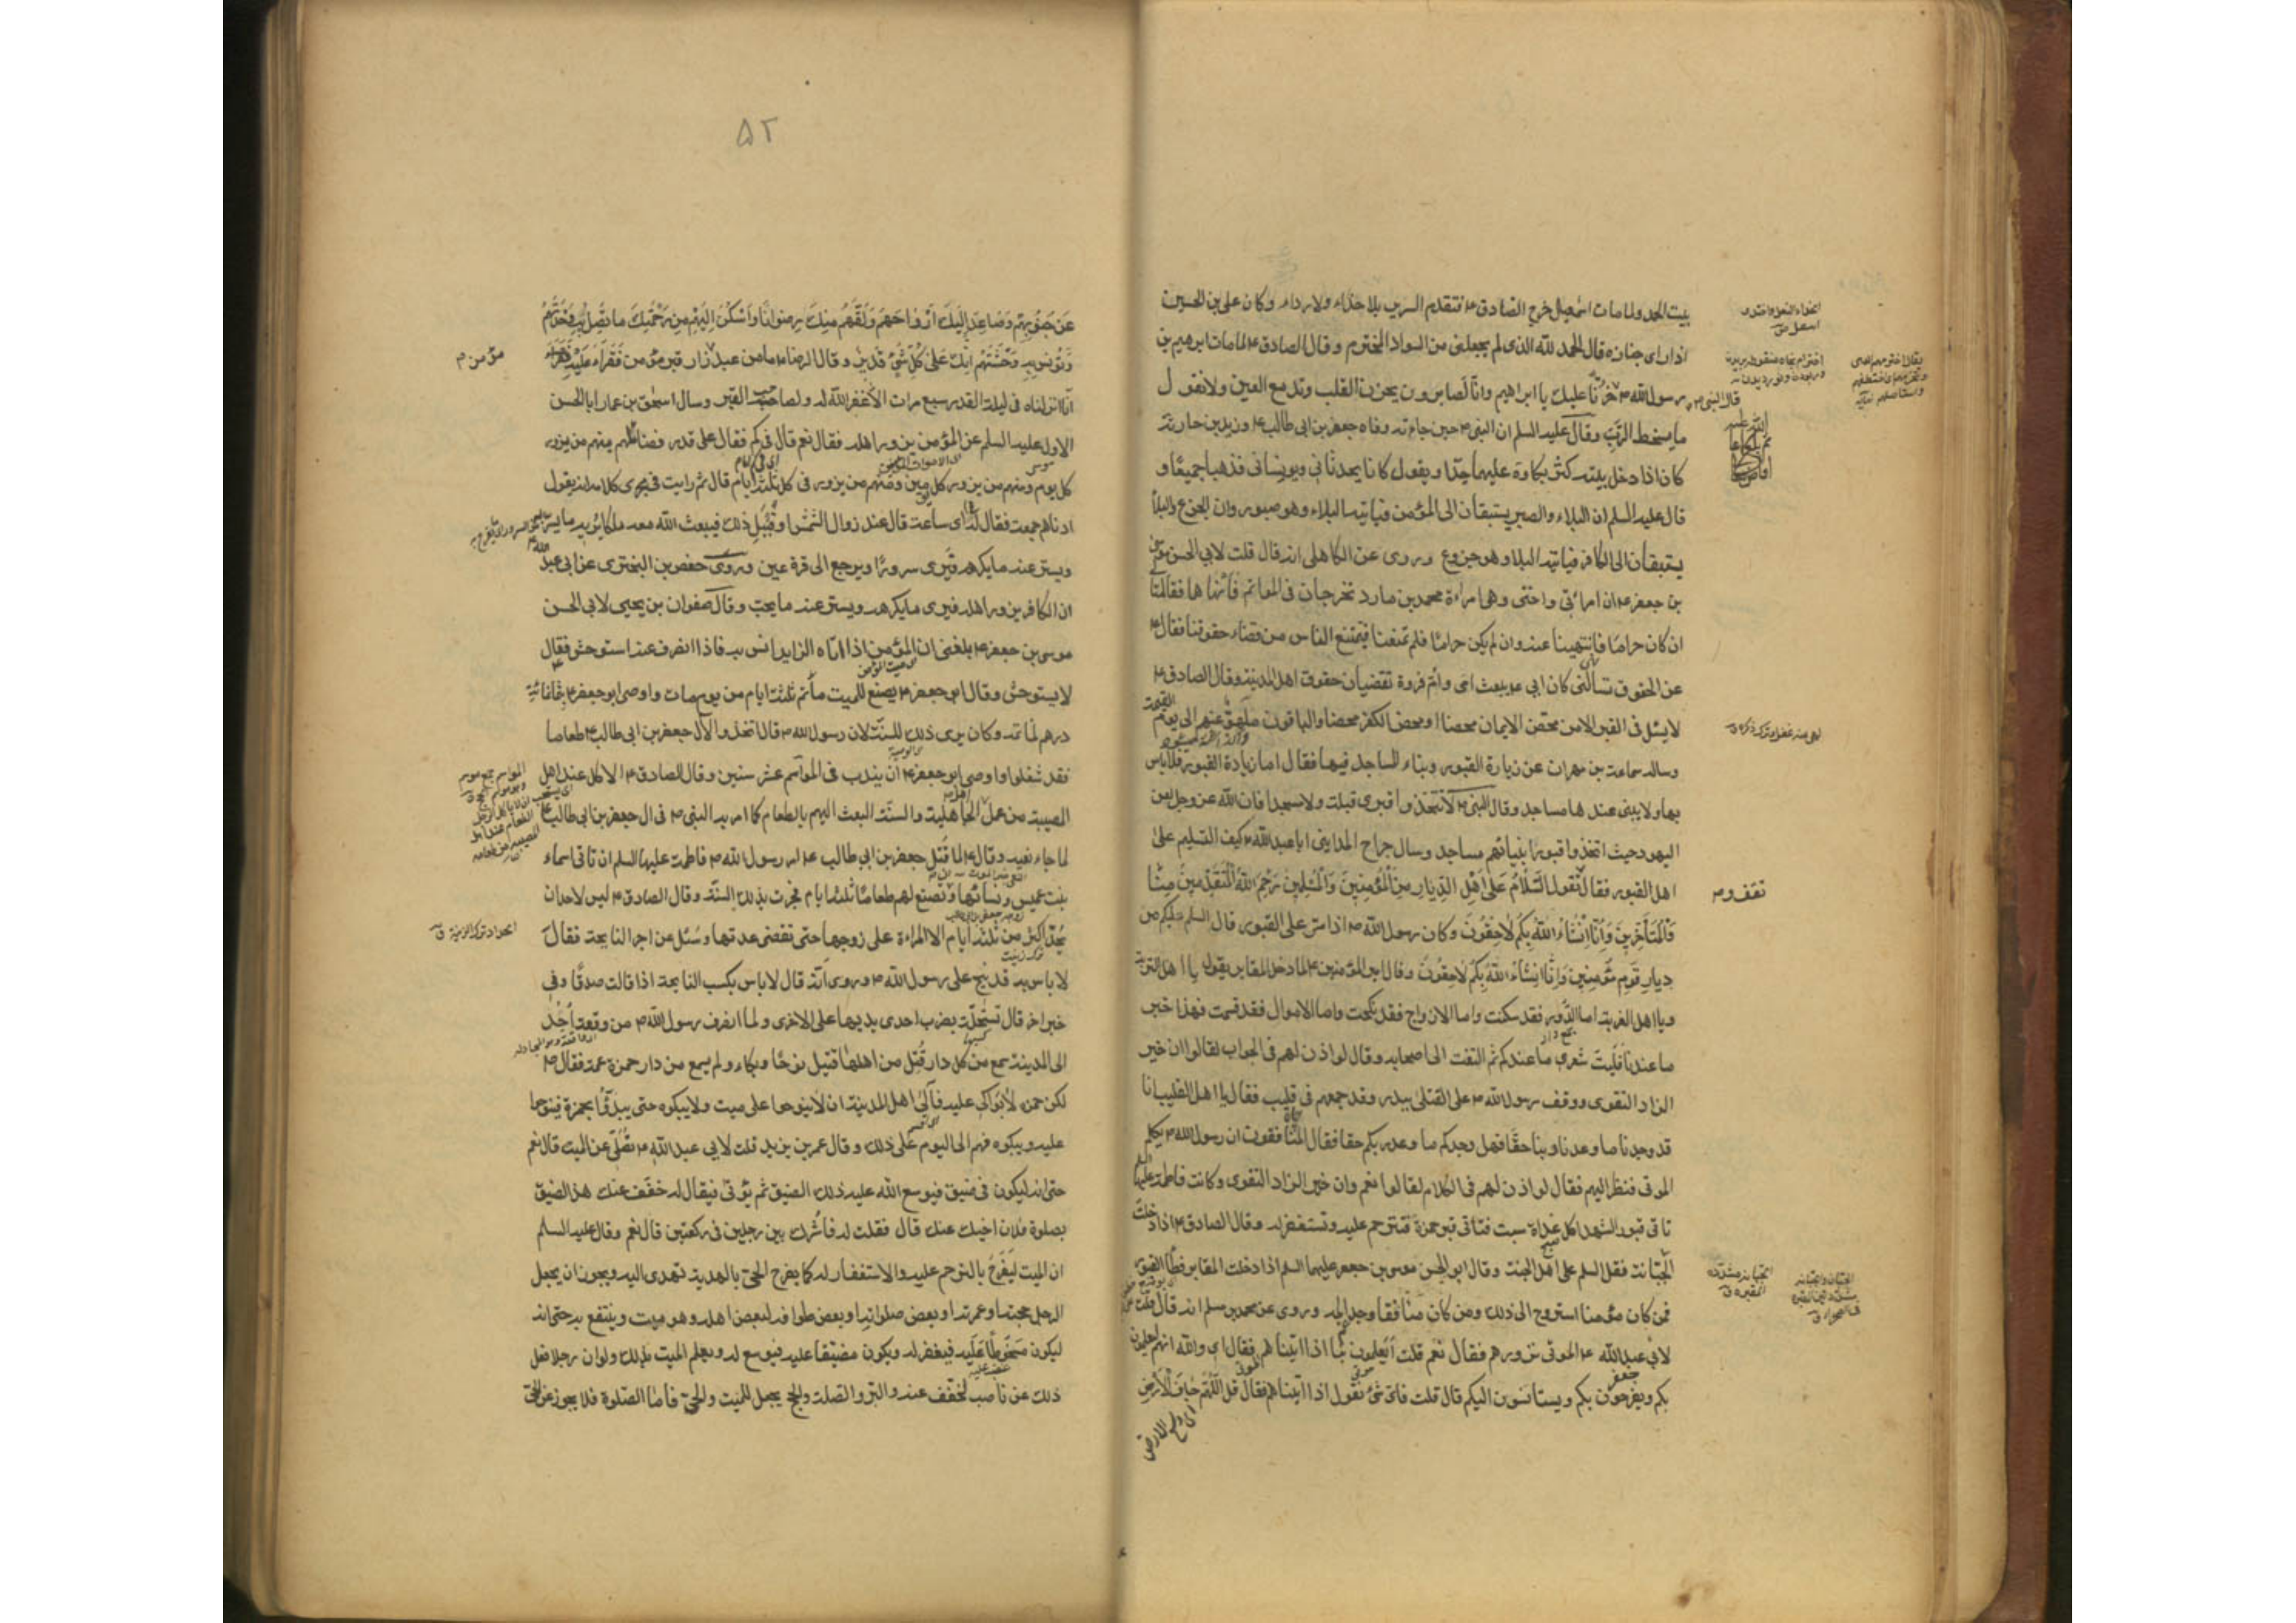 بيت الحمد ولما مات اسمعيل خرج الصادق ع فتقدم السرير بلا حذاء ولا رداء وكان علي بن الحسين
اذا راى جنازه قال الحمد لله الذى لم يجعلنى من السواد المخترم وقال الصادق ع لما مات ابرهيم بن
رسول الله ص قال النبى ص حزنا عليك يا ابراهيم وانا لصابرون يحزن القلب وتدمع العين ولا نقول
ما يسخط الرب وقال عليه السلم ان النبى ص حين جاءته وفاه جعفر بن ابى طالب ع وزيد بن حارثه
كان اذا دخل بيته كثر بكاؤه عليهما جدا ويقول كانا يحدثانى ويونسانى فذهبا جميعا و
قال عليه السلم ان البلاء والصبر يستبقان الى المؤمن فياتيه البلاء وهو صبور وان الجزع والبلاء
يستبقان الى الكافر فياتيه البلاء وهو جزوع وروى عن الكاهلى انه قال قلت لابى الحسن موسى
بن جعفر ع ان امراتى واختى وهى امراءة محمد بن مارد تخرجان فى الماتم فانهاها فقالتا
ان كان حراما فانتهينا عنه وان لم يكن حراما فلم تمنعنا فيمتنع الناس من قضاء حقوقنا فقال ع
عن الحقوق تسالنى كان ابى ع يبعث امى وام فروة تقضيان حقوق اهل المدينة وقال الصادق ع
لا يسئل فى القبر الا من محض الايمان محضا او محض الكفر محضا والباقون ملهو عنهم الى يوم القيمة
وساله سماعة بن مهران عن زيارة القبور وبناء المساجد فيها فقال اما زيارة القبور فلا باس
بها ولا يبنى عندها مساجد وقال النبى ص لا تتخذوا قبرى قبلة ولا مسجدا فان الله عز وجل لعن
اليهود حيث اتخذوا قبور انبيائهم مساجد وسال جراح المداينى ابا عبد الله ع كيف التسليم على
اهل القبور فقال تقول السلام على اهل الديار من المؤمنين والمسلمين رحم الله المتقدمين منا
والمتأخرين وانا انشاء الله بكم لاحقون وكان رسول الله ص اذا مر على القبور قال السلم عليكم من
ديار قوم مؤمنين وانا انشاء الله بكم لاحقون وقال امير المؤمنين ع لما دخل المقابر يقول يا اهل التربة
ويا اهل الغربة اما الدور فقد سكنت واما الازواج فقد نكحت واما الاموال فقد قسمت فهذا خبر
ما عندنا فليت شعرى ما عندكم ثم التفت الى اصحابه وقال لو اذن لهم فى الجواب لقالوا ان خير
الزاد التقوى ووقف رسول الله ص على القتلى ببدر وقد جمعهم فى قليب فقال يا اهل القليب انا
قد وجدنا ما وعدنا ربنا حقا فهل وجدتم ما وعد ربكم حقا فقال المنافقون ان رسول الله ص يكلم
الموتى فنظر اليهم فقال لو اذن لهم فى الكلام لقالوا نعم وان خير الزاد التقوى وكانت فاطمة عليها
تاتى قبور الشهدا كل غداة سبت فتأتى قبر حمزة فتترحم عليه وتستغفر له وقال الصادق ع اذا دخلت
الجبانة فقل السلم على اهل الجنة وقال ابو الحسن موسى بن جعفر عليهما السلم اذا دخلت المقابر فطأ القبور
فمن كان مؤمنا استروح الى ذلك ومن كان منافقا وجد المه وروى عن محمد بن مسلم انه قال قلت
لابى عبد الله ع الموتى نزورهم فقال نعم قلت أفيعلمون بنا اذا اتيناهم فقال اى والله انهم ليعلمون
بكم ويفرحون بكم ويستانسون اليكم قال قلت فاى شئ نقول اذا اتيناهم فقال قل اللهم جاف الارض
تقف و م
٥٢
عن جنوبهم وصاعد اليك ارواحهم ولقهم منك رضوانا واسكن اليهم من رحمتك ما تصل به وحدتهم
وتونس به وحشتهم انك على كل شئ قدير وقال الرضا ع ما من عبد زار قبر مؤمن فقراء عليه
انا انزلناه فى ليلة القدر سبع مرات الا غفر الله له ولصاحب القبر وسال اسحق بن عمار ابا الحسن
الاول عليه السلم عن المؤمن يزور اهله فقال نعم قال فى كم فقال على قدر فضائلهم منهم من يزور
كل يوم ومنهم من يزور كل يومين ومنهم من يزور فى كل ثلثة ايام قال ثم رايت فى مجرى كلامه انه يقول
ادناهم جمعة فقال له اى ساعة قال عند زوال الشمس او قبيل ذلك فيبعث الله معه ملكا يريه ما يسر به
ويستر عنه ما يكرهه فيرى سرورا ويرجع الى قرة عين وروى حفص بن البخترى عن ابى عبد الله ع
ان الكافر يزور اهله فيرى ما يكرهه ويستر عنه ما يحب وقال صفوان بن يحيى لابى الحسن
موسى بن جعفر ع بلغنى ان المؤمن اذا اتاه الزاير انس به فاذا انصرف عنه استوحش فقال
لا يستوحش وقال ابو جعفر ع يصنع للميت مأتم ثلثة ايام من يوم مات واوصى ابو جعفر ع بثمانمائة
درهم لماتمه وكان يرى ذلك للسنة لان رسول الله ص قال اتخذوا لآل جعفر بن ابى طالب ع طعاما
فقد شغلوا واوصى ابو جعفر ع ان يندب فى المواسم عشر سنين وقال الصادق ع الاكل عند اهل
المصيبة من عمل اهل الجاهلية والسنة البعث اليهم بالطعام كما امر به النبى ص فى ال جعفر بن ابى طالب ع
لما جاء نعيه وقال ع لما قتل جعفر بن ابى طالب ع امر رسول الله ص فاطمة عليها السلم ان تاتى اسماء
بنت عميس ونسائها وتصنع لهم طعاما ثلثة ايام فجرت بذلك السنة وقال الصادق ع ليس لاحد ان
يحد اكثر من ثلثة ايام الا المراءة على زوجها حتى تقضى عدتها وسئل عن اجر النايحة فقال
لا باس به قد نيح على رسول الله ص وروى انه قال لا باس بكسب النايحة اذا قالت صدقا وفى
خبر اخر قال تستحله بضرب احدى يديها على الاخرى ولما انصرف رسول الله ص من وقعة احد
الى المدينة سمع من كل دار قتل من اهلها قتيل نوحا وبكاء ولم يسمع من دار حمزة عمه فقال ص
لكن حمزه لا بواكى عليه فآلى اهل المدينة ان لا ينوحوا على ميت ولا يبكوه حتى يبدؤا بحمزة فينوحوا
عليه ويبكوه فهم الى اليوم على ذلك وقال عمر بن يزيد قلت لابى عبد الله ع نصلى عن الميت قال نعم
حتى انه ليكون فى ضيق فيوسع الله عليه ذلك الضيق ثم يؤتى فيقال له خفف عنك هذا الضيق
بصلوة فلان اخيك عنك قال فقلت له فأشرك بين رجلين فى ركعتين قال نعم وقال عليه السلم
ان الميت ليفرح بالترحم عليه والاستغفار له كما يفرح الحى بالهدية تهدى اليه ويجوز ان يجعل
الرجل حجته او عمرته او بعض صلواته او بعض طوافه لبعض اهله وهو ميت وينتفع به حتى انه
ليكون مسخوطا عليه فيغفر له ويكون مضيقا عليه فيوسع له ويعلم الميت بذلك ولو ان رجلا فعل
ذلك عن ناصب لخفف عنه والبر والصلة والحج يجعل للميت والحى فاما الصلوة فلا يجوز عن الحى
مؤمن م